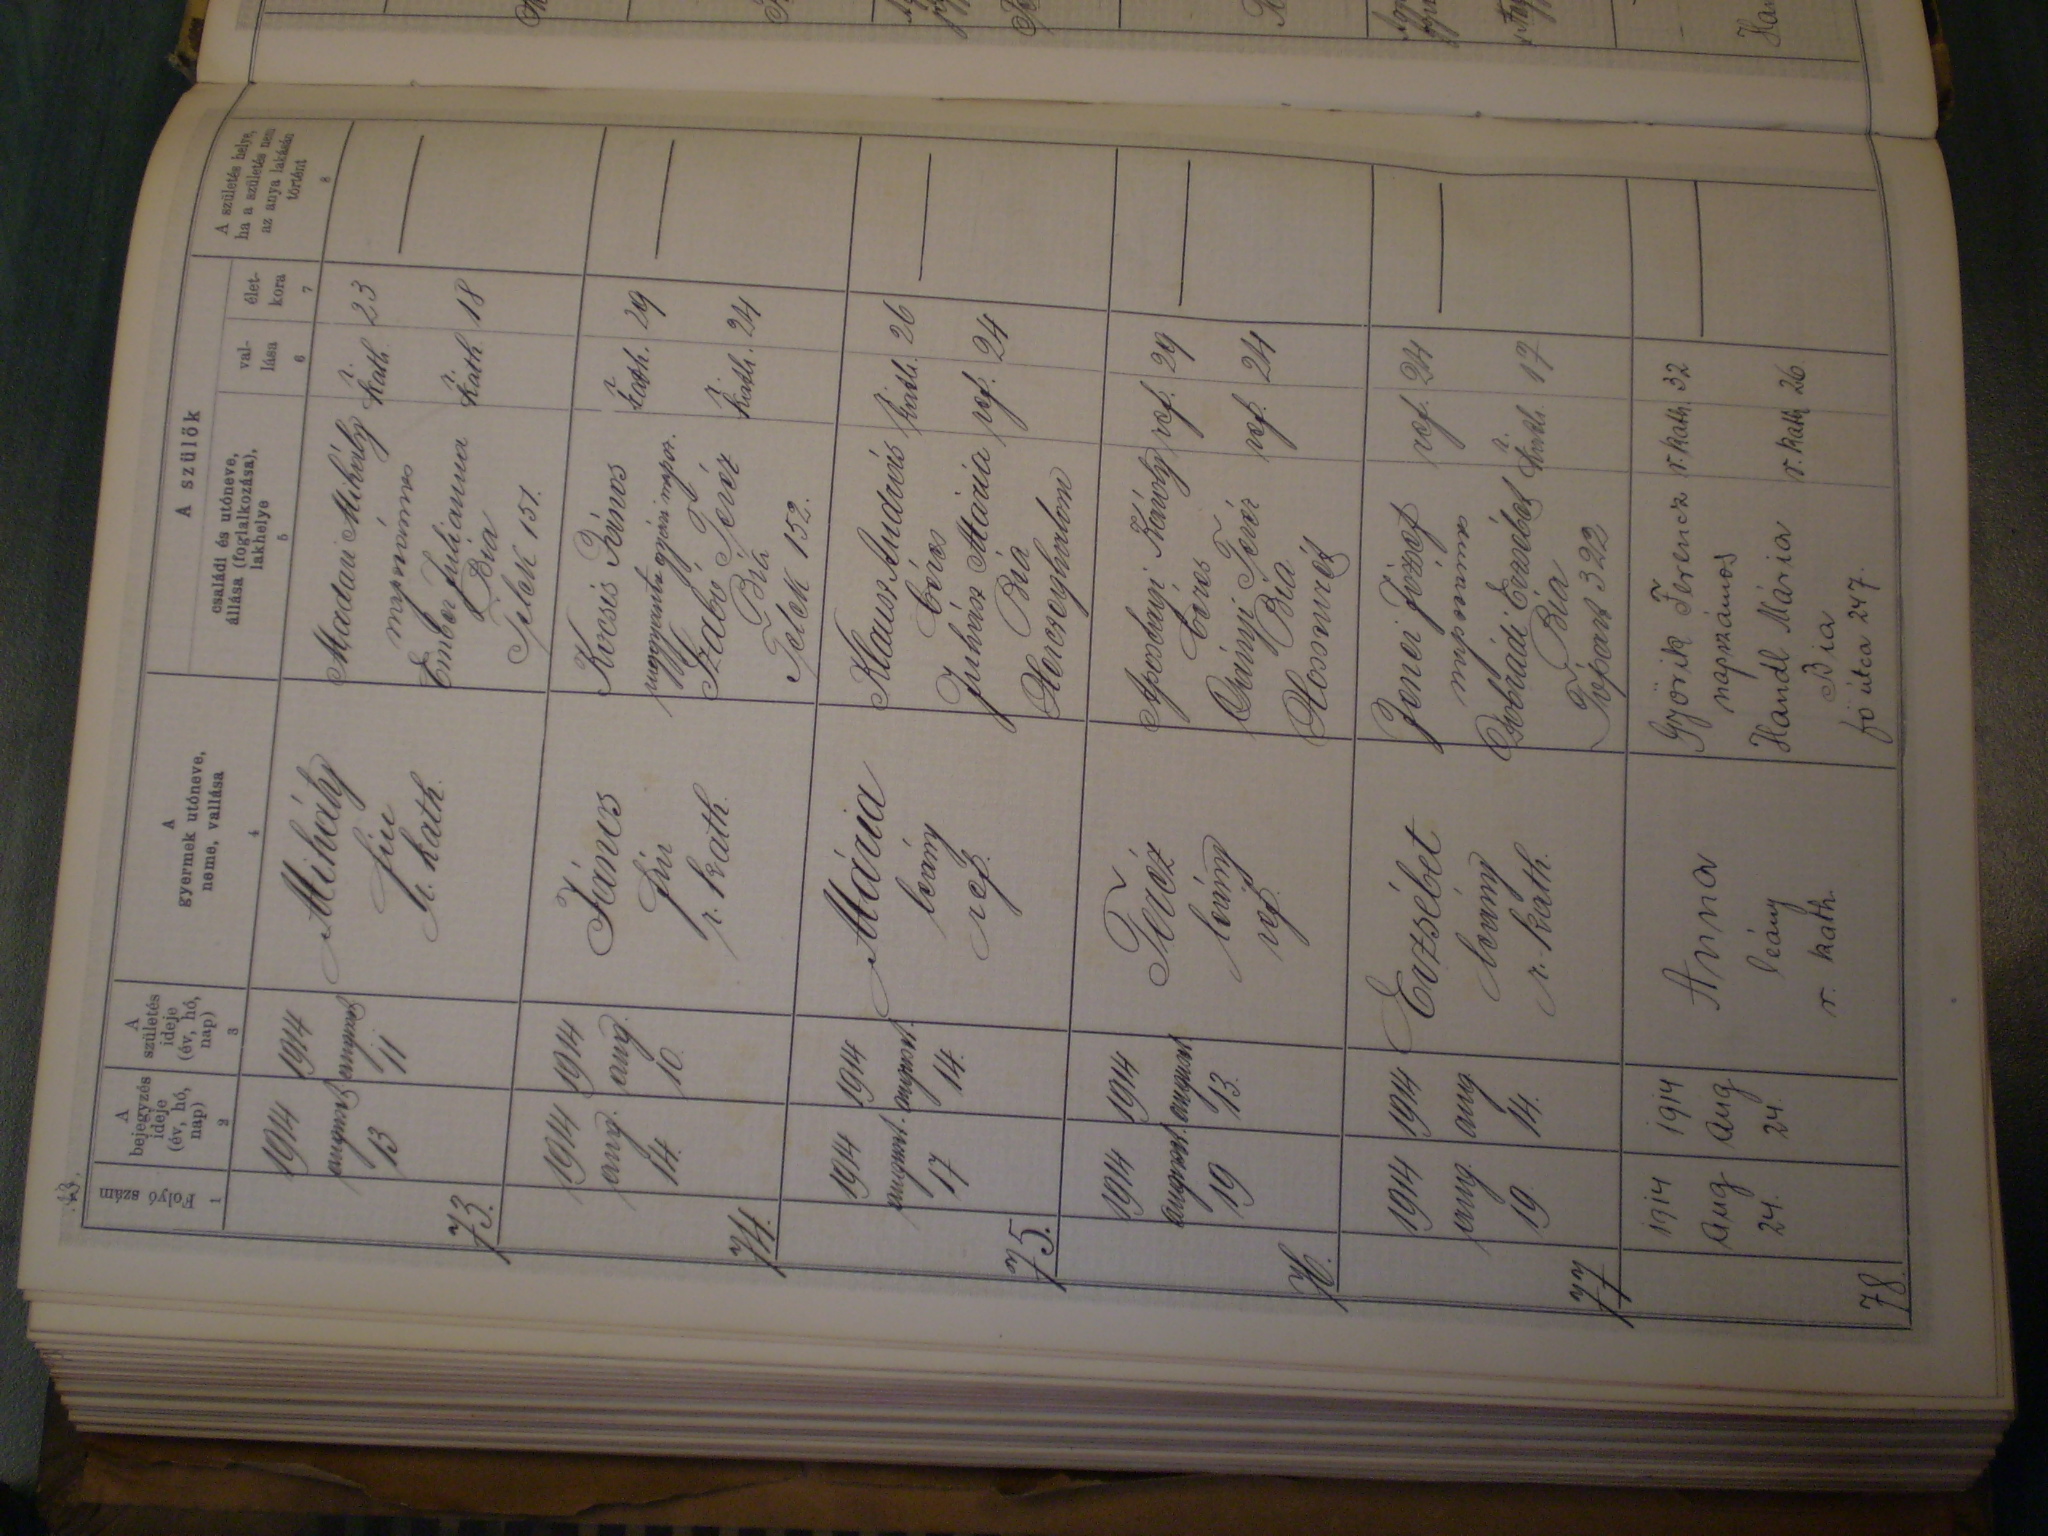 A szülők
Folyó szám
A bejegyzés ideje (év, hó, nap)
A születés ideje (év, hó, nap)
A gyermek utóneve, neme, vallása
családi és utóneve, állása (foglalkozása), lakhelye
vallása
életkora
A születés helye, ha a születés nem az anya lakásán történt
1 2 3 4 5 6 7 8
73.
1914
august
13
1914
august
11
Mihály
fiu
r. kath.
Madari Mihály
napszámos
r. kath. 23
Ember Juliánna
r. kath. 18
Bia
Telek 151.
74.
1914
aug.
14.
1914
aug.
10.
János
fiu
r. kath.
Kocsis János
r. kath. 29
Szabó Teréz
r. kath. 24
Bia
Telek 152.
75.
1914
august.
17
1914
august.
14.
Mária
leány
ref.
Klausz András
béres
r. kath. 26
Juhász Mária
ref. 24
Bia
Herceghalom
76.
1914
august.
19
1914
august
13.
Teréz
leány
ref.
Aposbagi Károly
béres
ref. 29
Teréz
ref. 24
Bia
77
1914
aug.
19.
1914
aug.
14.
Erzsébet
leány
r. kath.
Jenei József
napszámos
ref. 24
Dobrádi Erzsébet
r. kath. 17
Bia
Tópart 322
78.
1914
Aug
24.
1914
Aug
24.
Anna
leány
r. kath.
Györik Ferencz
napszámos
r. kath. 32
Handl Mária
r. kath 26
Bia
fő útca 247.